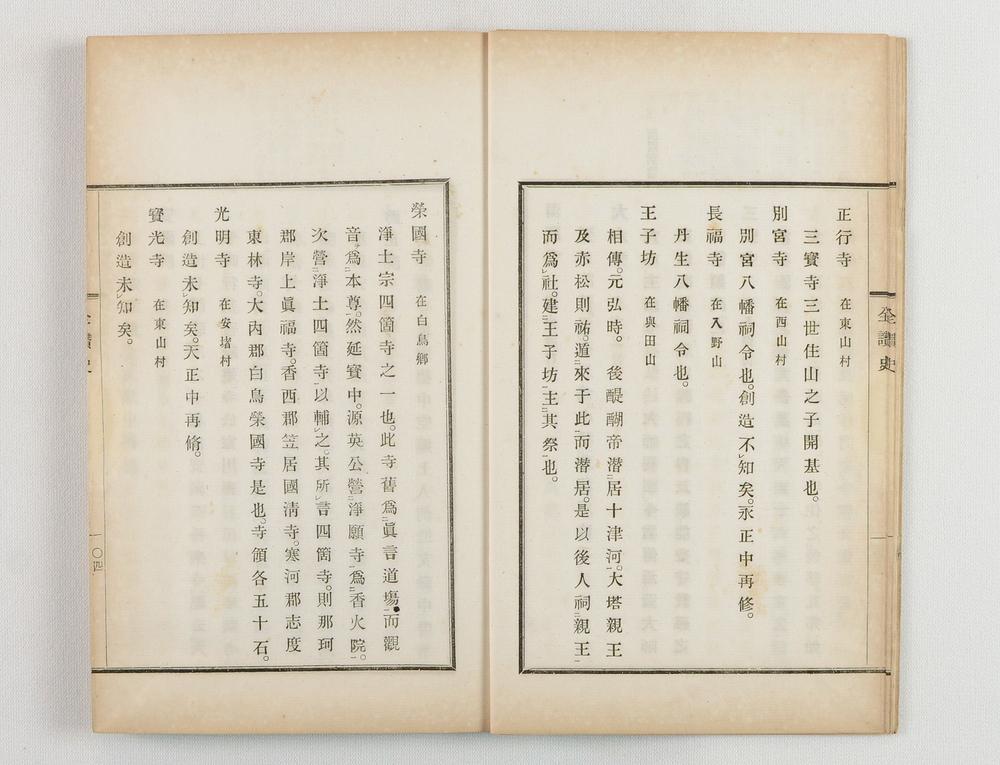 正行寺 在東山村
三寶寺三世住山之子開基也。
別宮寺 在西山村
別宮八幡祠令也。創造不㆑知矣。永正中再修。
長福寺 在入野山
丹生八幡祠令也。
王子坊 在與田山
相傳。元弘時。後醍醐帝潜㆓居十津河㆒。大塔親王
及赤松則祐。遁㆓來于此㆒而潜居。是以後人祠㆓親王㆒
而爲㆑社。建㆓王子坊㆒主㆓其祭㆒也。
榮國寺 在白鳥鄉
淨土宗四箇寺之一也。此寺舊爲㆓眞言道場㆒。而觀
音爲㆓本尊㆒。然延寶中。源英公營㆓淨願寺㆒。爲㆓香火院㆒。
次營㆓淨土四箇寺㆒以輔㆑之。其所㆑書四箇寺。則那珂
郡岸上眞福寺。香西郡笠居國淸寺。寒河郡志度
東林寺。大內郡白鳥榮國寺是也。寺領各五十石。
光明寺 在安堵村
創造未㆑知矣。天正中再脩。
寶光寺 在東山村
創造未㆑知矣。
全讚史
一〇四